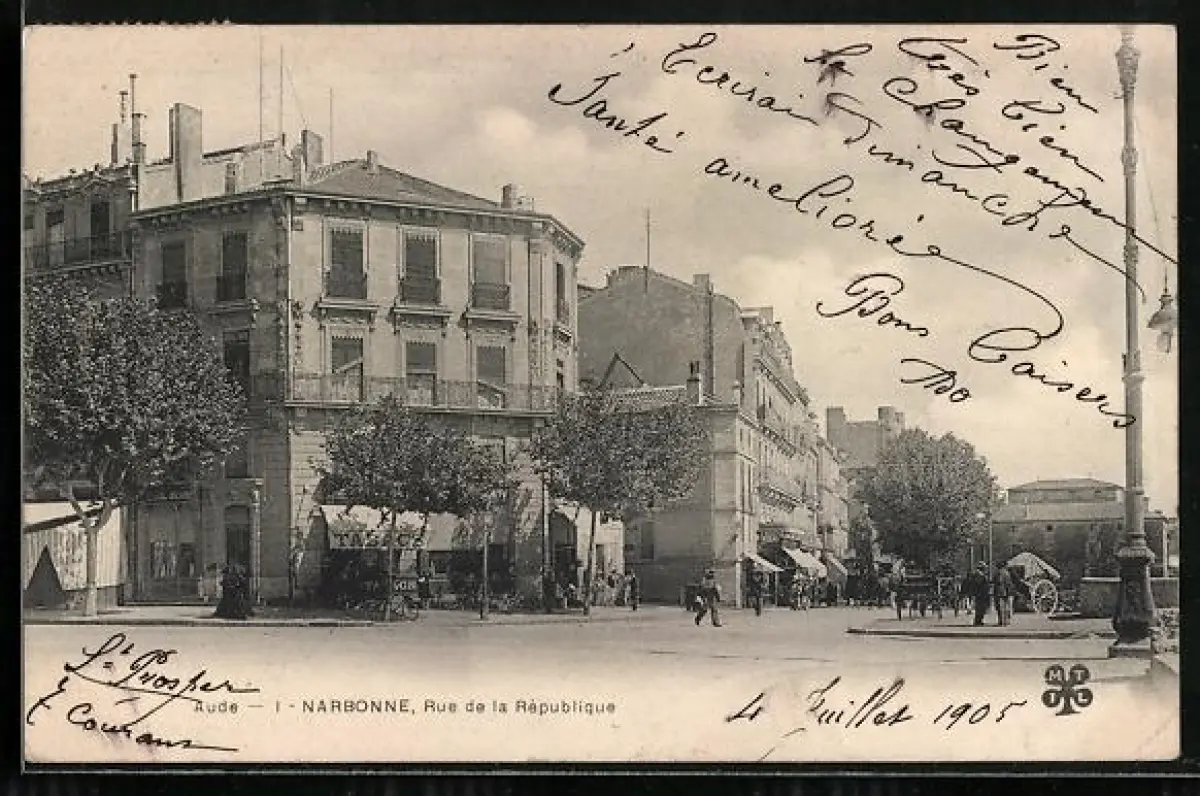 Bien
très bien
le changement
Ecrirai Dimanche
Santé ameliorée
Bons Baisers
TABACS
St Prosper
Aude — 1 - NARBONNE, Rue de la République
4 Juillet 1905
MTTL